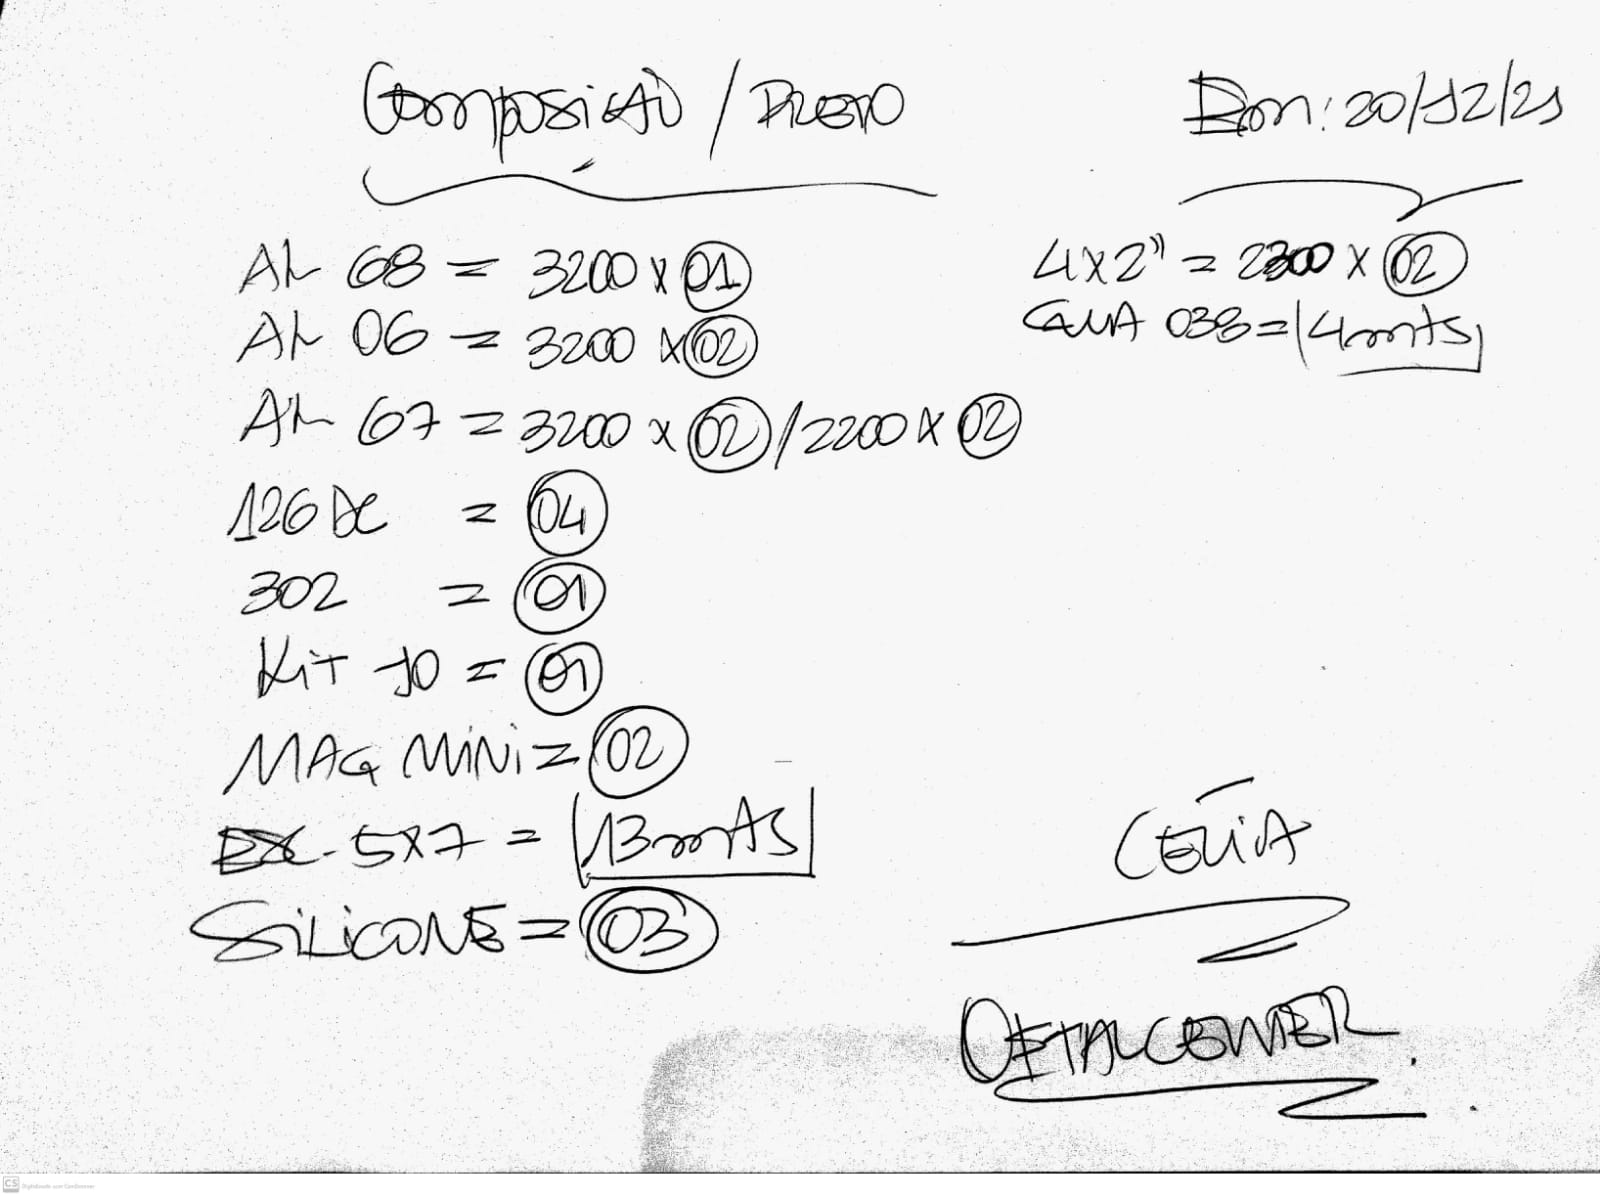 Composição / PRETO
Bom: 20/12/21
AL 68 = 3200 x 01
AL 06 = 3200 x 02
AL 67 = 3200 x 02 / 2200 x 02
126 DC = 04
302 = 01
Kit 10 = 01
MAG MiNi = 02
5x7 = 13mts
SiLiCONE = 03
4x2" = 2300 x 02
038 = 4mts
CELiA
CS Digitalizado com CamScanner